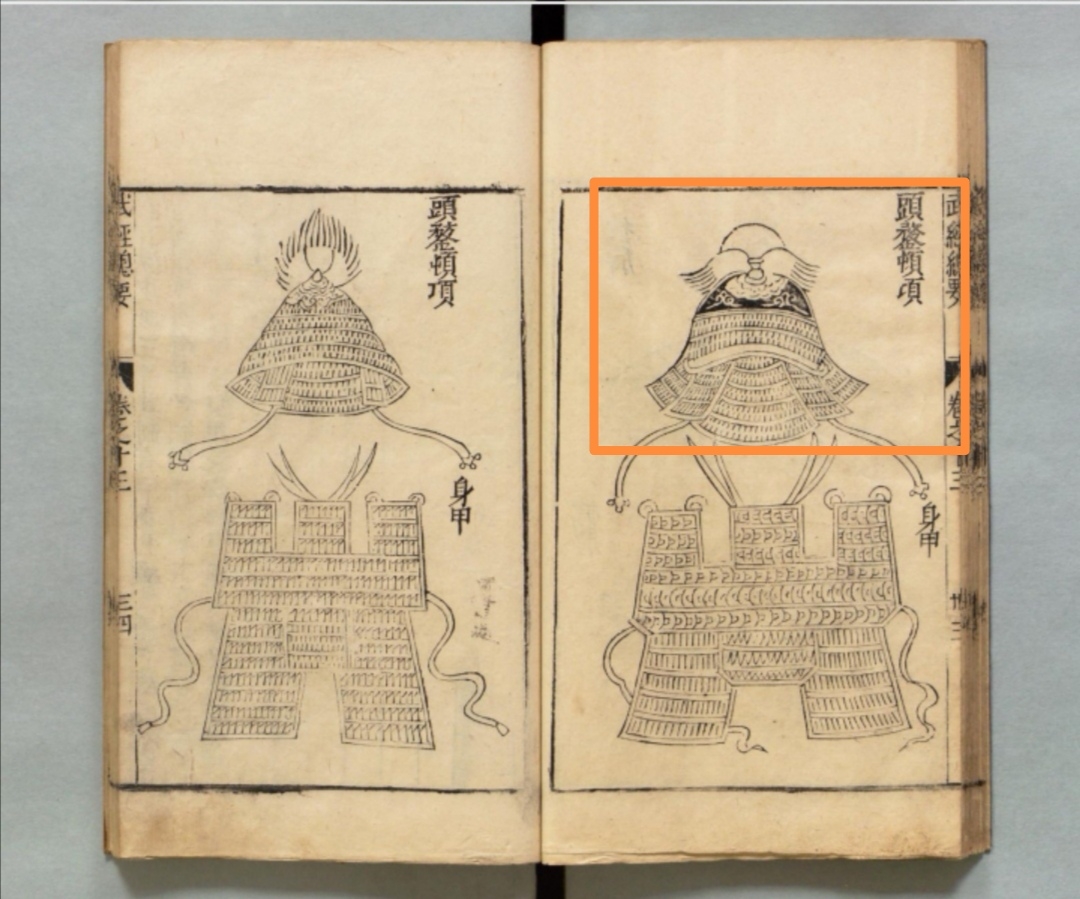 武經總要
頭鍪頓項
身甲
頭鍪頓項
身甲
武經總要
卷之十三
三四